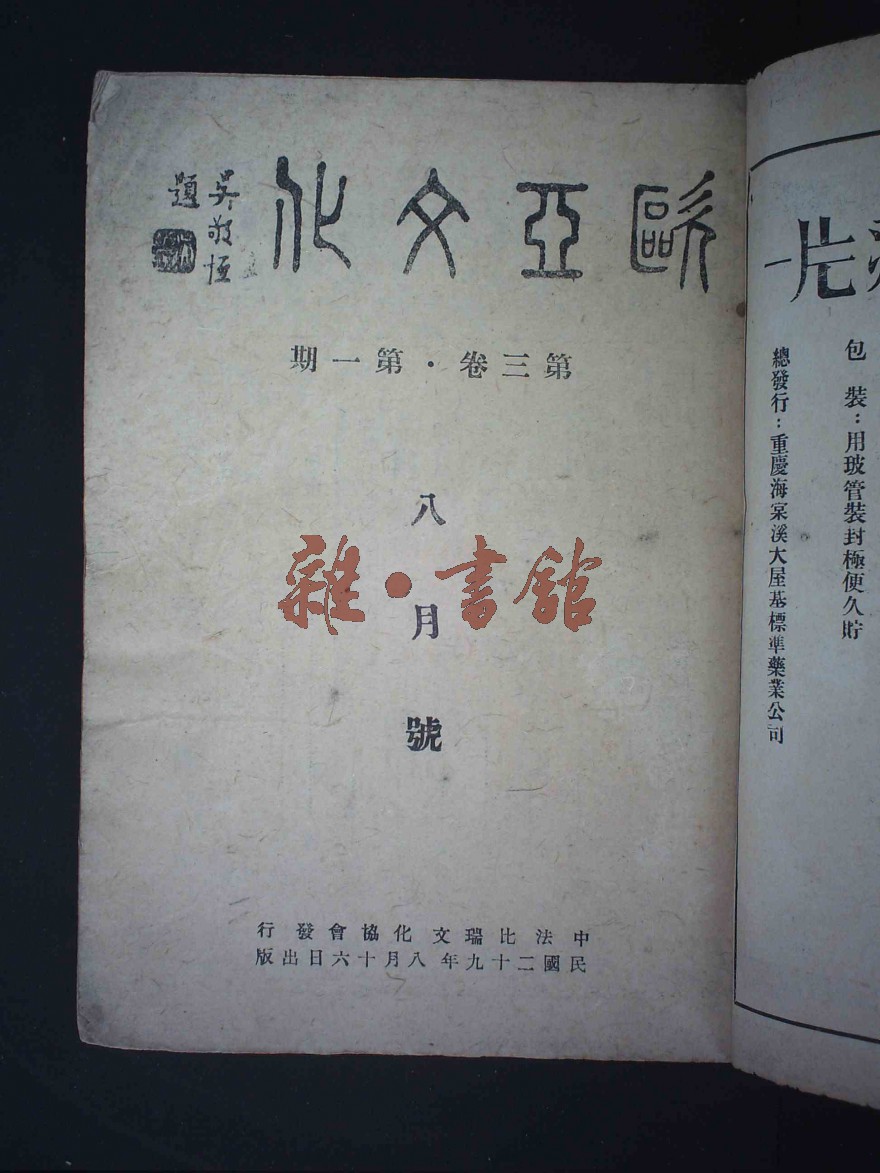 歐亞文化
吳敬恆
題
第三卷·第一期
八月號
雜·書館
中法比瑞文化協會發行
民國二十九年八月十六日出版
片
包裝：用玻管裝封極便久貯
總發行：重慶海棠溪大屋基標準藥業公司